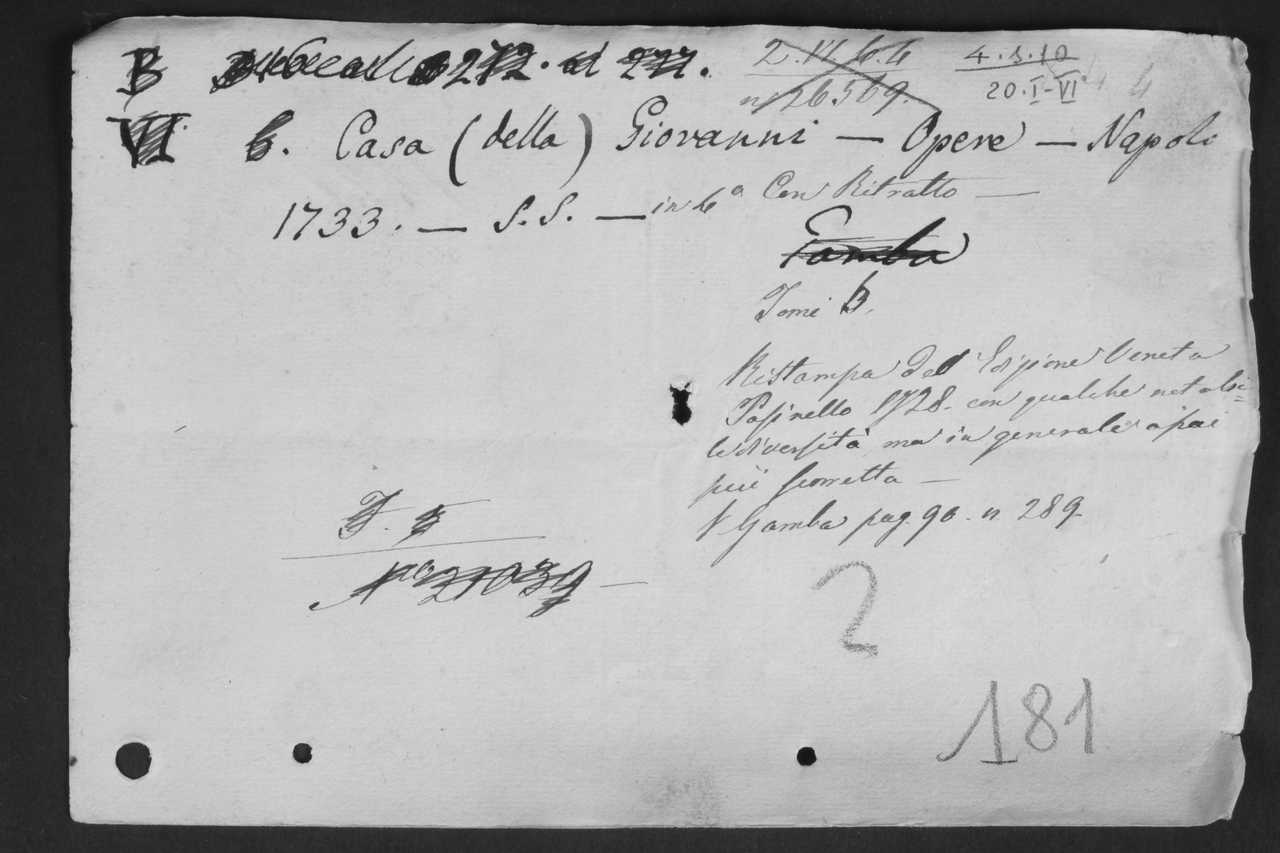 B 272. al 277.
2.11.6.4
n. 26569.
4.3.10
20.I-VI
VI 6. Casa (della) Giovanni — Opere — Napoli
1733. — S.S. — in 4º Con Ritratto —
Gamba
Tomi 6.
Ristampa del Edizione Veneta
Pasinello 1728. con qualche notabi=
le diversità, ma in generale assai
più scorretta —
V Gamba pag. 90. n 289.
Nº 21039
2
181